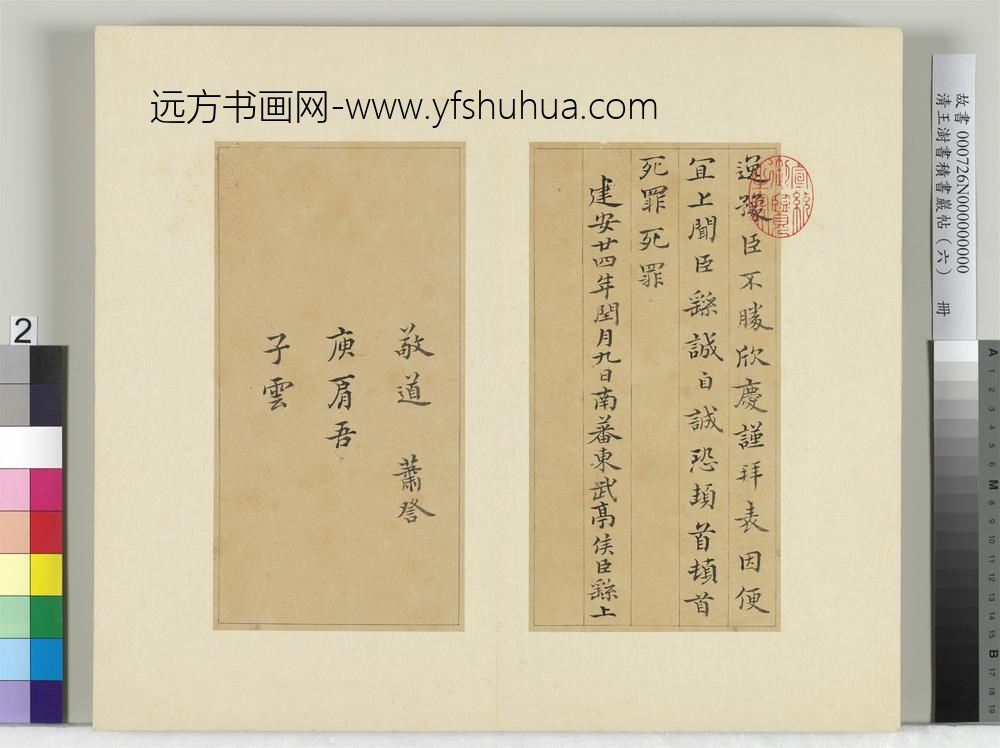 远方书画网-www.yfshuhua.com
逸豫臣不勝欣慶謹拜表因便
宜上聞臣繇誠自誠恐頓首頓首
死罪死罪
建安廿四年閏月九日南蕃東武亭侯臣繇上
敬道 蕭登
庾肩吾
子雲
故書 000726N000000000
清王澍書積書巖帖（六） 冊
2
A 1 2 3 4 5 6 M 8 9 10 11 12 13 14 15 B 17 18 19